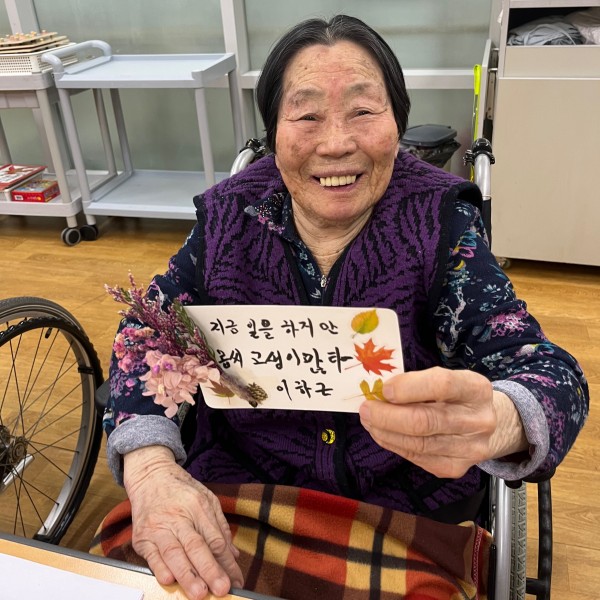 지금 일을 하게 안
고생이 많타
이하근